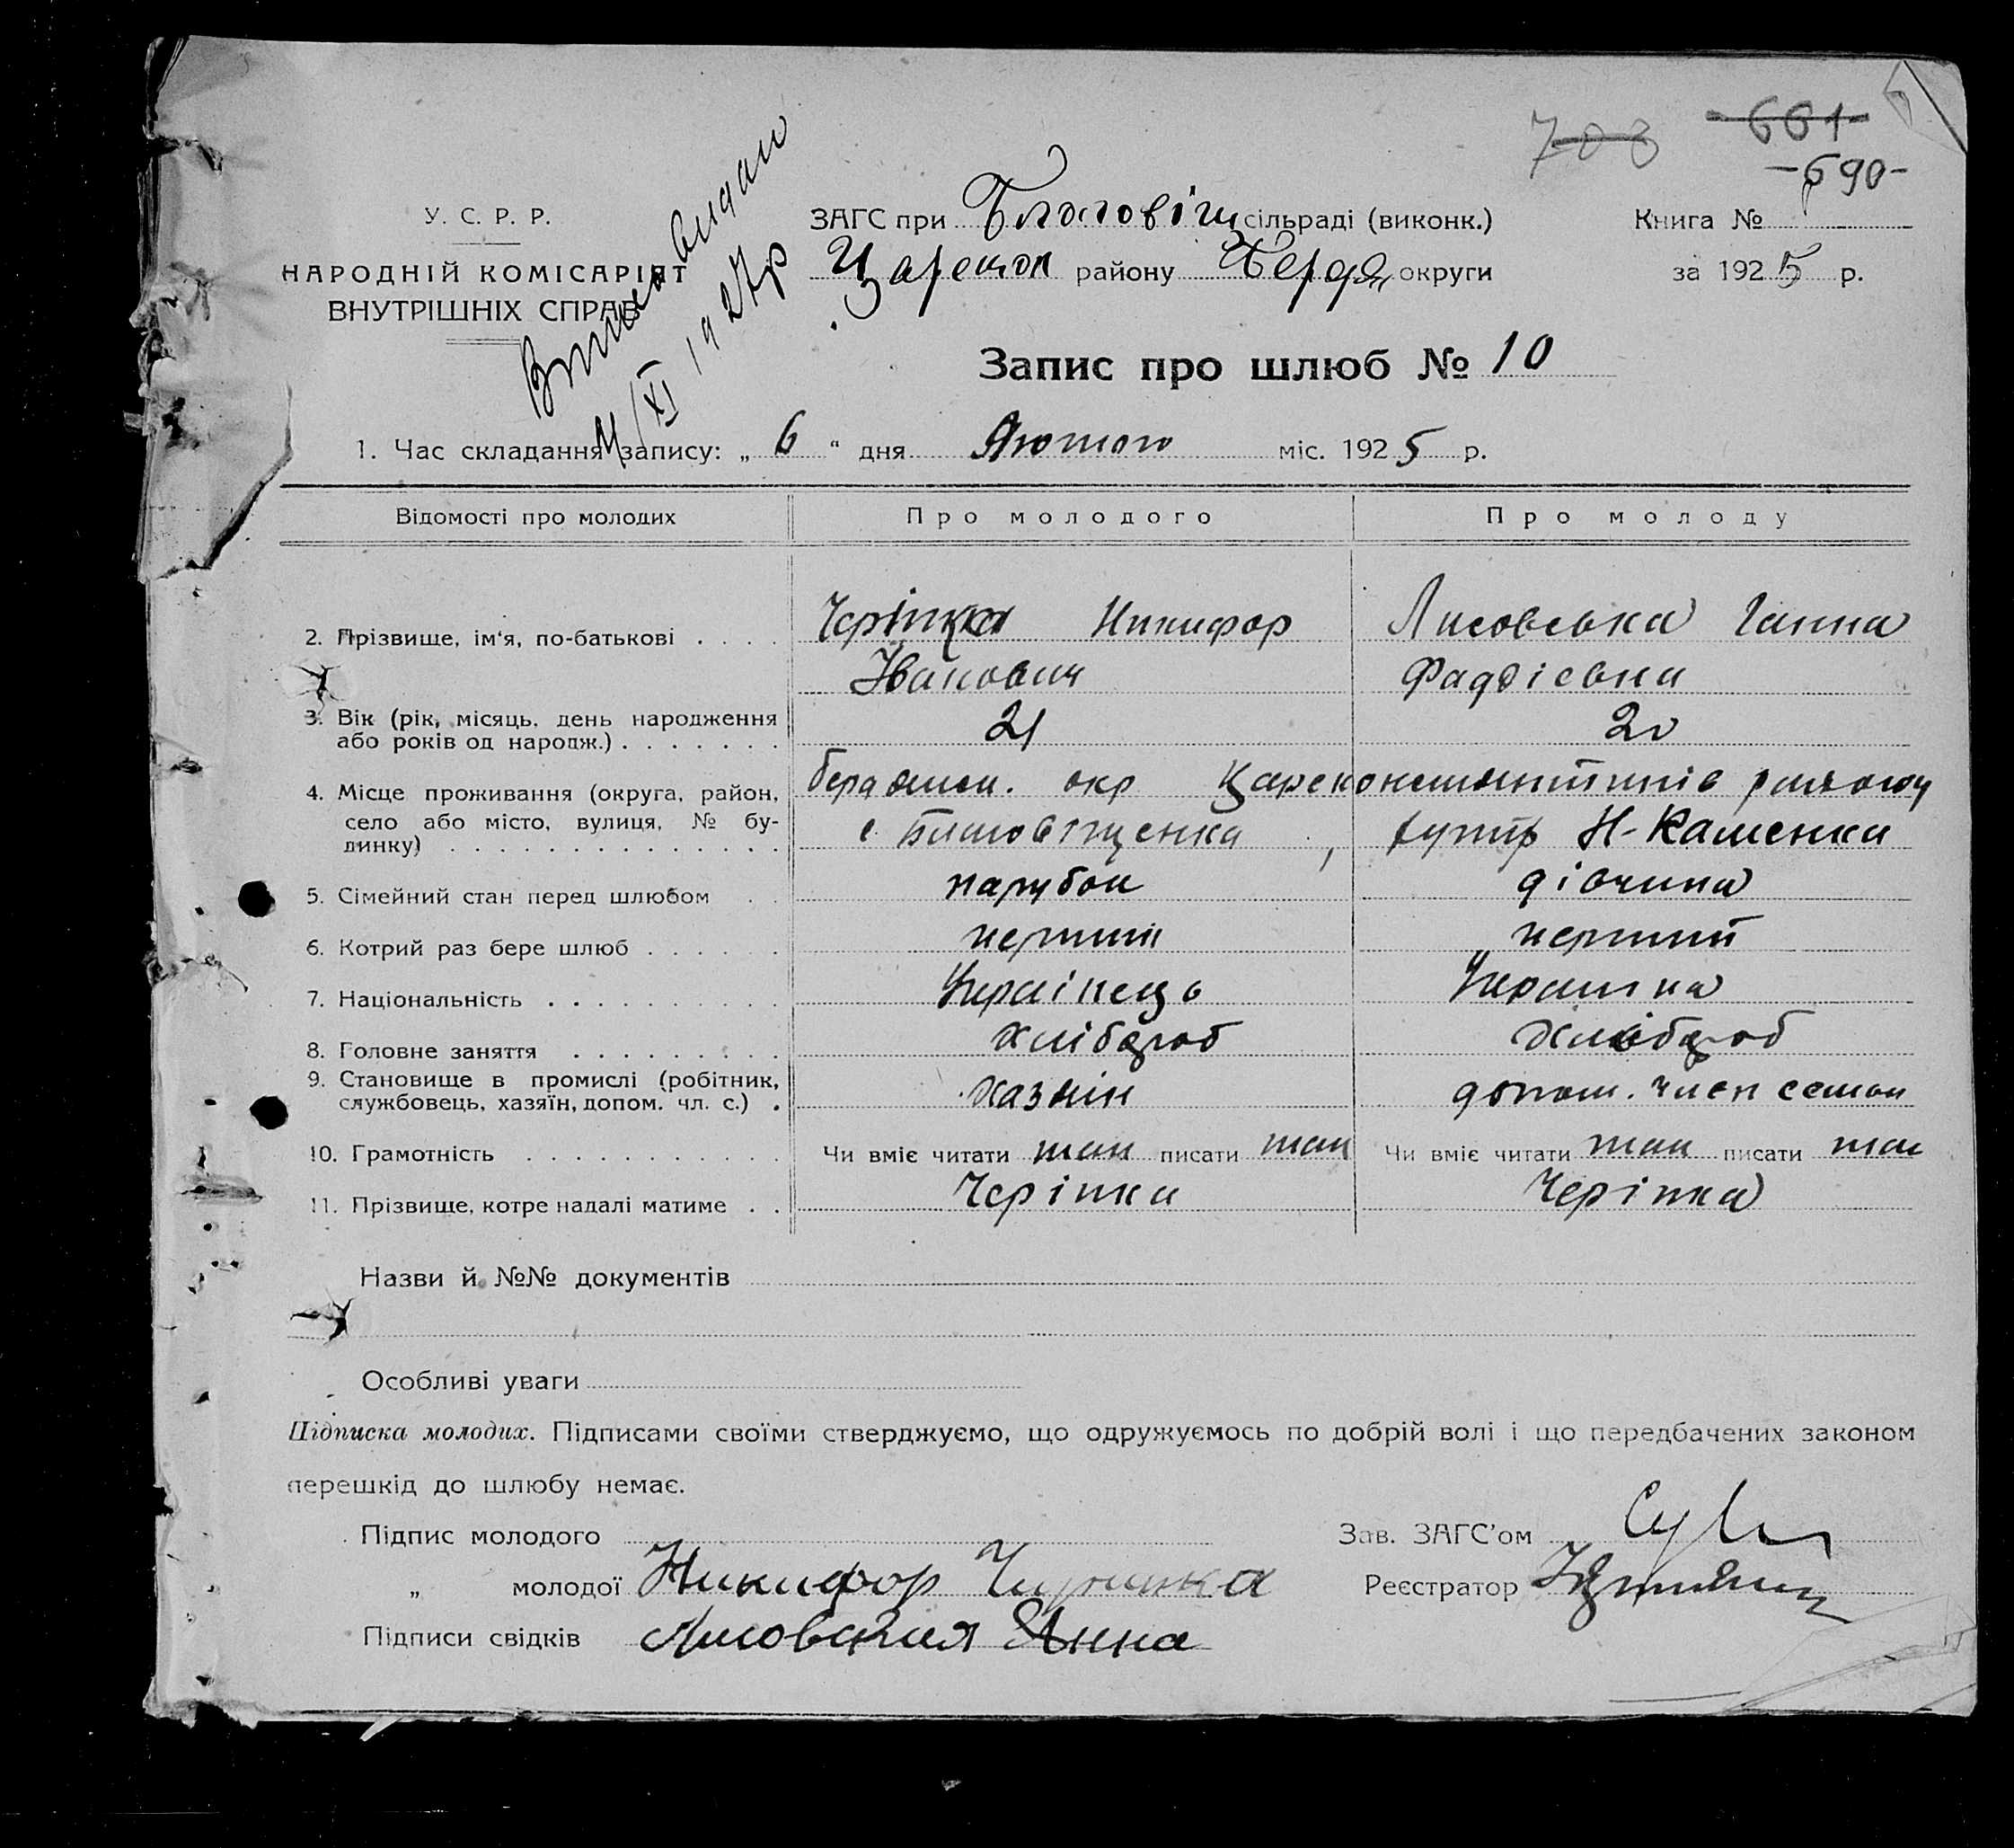 703 661
-690-
У. С. Р. Р.
НАРОДНІЙ КОМІСАРІЯТ
ВНУТРІШНІХ СПРАВ
видано
XI 1927р
ЗАГС при Благовіщ сільраді (виконк.)
Царекон району Бердя округи
Книга №
за 1925 р.
Запис про шлюб № 10
1. Час складання запису: „ 6 “ дня Лютого міс. 1925 р.
Відомості про молодих Про молодого Про молоду
2. Прізвище, ім‘я, по-батькові . . . . Черіпка Никифор Лисовська Ганна
Іванович Фаддіевна
3. Вік (рік, місяць, день народження
або років од народж.) . . . . . . . 21 20
4. Місце проживання (округа, район, Бердянськ. окр Цареконстантинів району
село або місто, вулиця, № бу- с Благовіщенка , хутір Н-Каменка
динку) . . . . . . . . . . . . . .
5. Сімейний стан перед шлюбом . . парубок дівчина
6. Котрий раз бере шлюб . . . . . . перший перший
7. Національність . . . . . . . . . . Українець Украінка
8. Головне заняття . . . . . . . . . хлібороб хлібороб
9. Становище в промислі (робітник,
службовець, хазяїн, допом. чл. с.) . хазяін допом. член семьи
10. Грамотність . . . . . . . . . . . Чи вміє читати так писати так Чи вміє читати так писати так
11. Прізвище, котре надалі матиме . . Черіпка Черіпка
Назви й №№ документів
Особливі уваги
Підписка молодих. Підписами своїми стверджуємо, що одружуємось по добрій волі і що передбачених законом
перешкід до шлюбу немає.
Підпис молодого
Зав. ЗАГС’ом
„ молодої Никифор Чирипка
Реєстратор
Підписи свідків Лисовская Анна